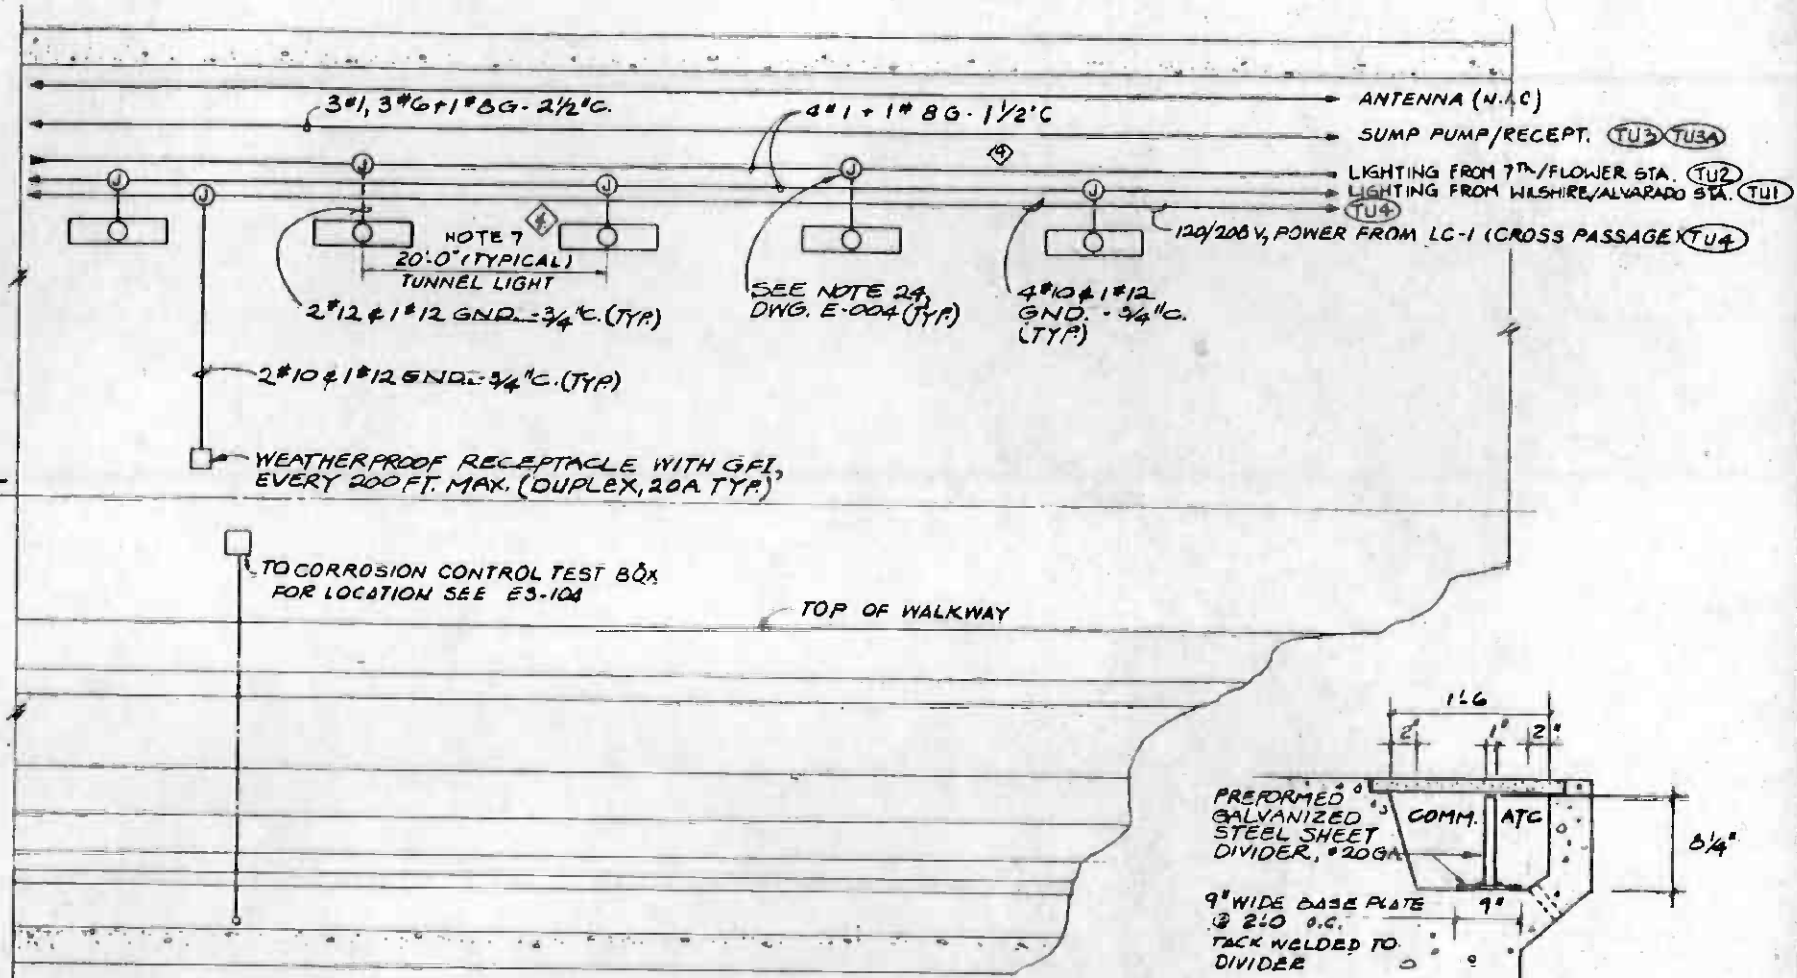 ANTENNA (N.I.C)
3#1, 3#6+1#8G-2½"C.
4#1+1#8G-1½"C
SUMP PUMP/RECEPT. TU3 TU3A
4
LIGHTING FROM 7TH/FLOWER STA. TU2
LIGHTING FROM WILSHIRE/ALVARADO STA. TU1
TU4
120/208V, POWER FROM LC-1 (CROSS PASSAGE) TU4
J
J
J
J
J
J
4
NOTE 7
20'-0" (TYPICAL)
TUNNEL LIGHT
2#12 & 1#12 GND.-¾"C. (TYP.)
SEE NOTE 24,
DWG. E-004 (TYP.)
4#10 & 1#12
GND. - ¾"C.
(TYP.)
2#10 & 1#12 GND.-¾"C. (TYP.)
WEATHERPROOF RECEPTACLE WITH GFI,
EVERY 200 FT. MAX. (DUPLEX, 20A TYP.)
TO CORROSION CONTROL TEST BOX
FOR LOCATION SEE ES-104
TOP OF WALKWAY
1'-6
2" 1" 2"
PREFORMED
GALVANIZED
STEEL SHEET
DIVIDER, #20GA
COMM. ATC
8¼"
9" WIDE BASE PLATE
@ 2'-0 O.C.
TACK WELDED TO
DIVIDER
9"